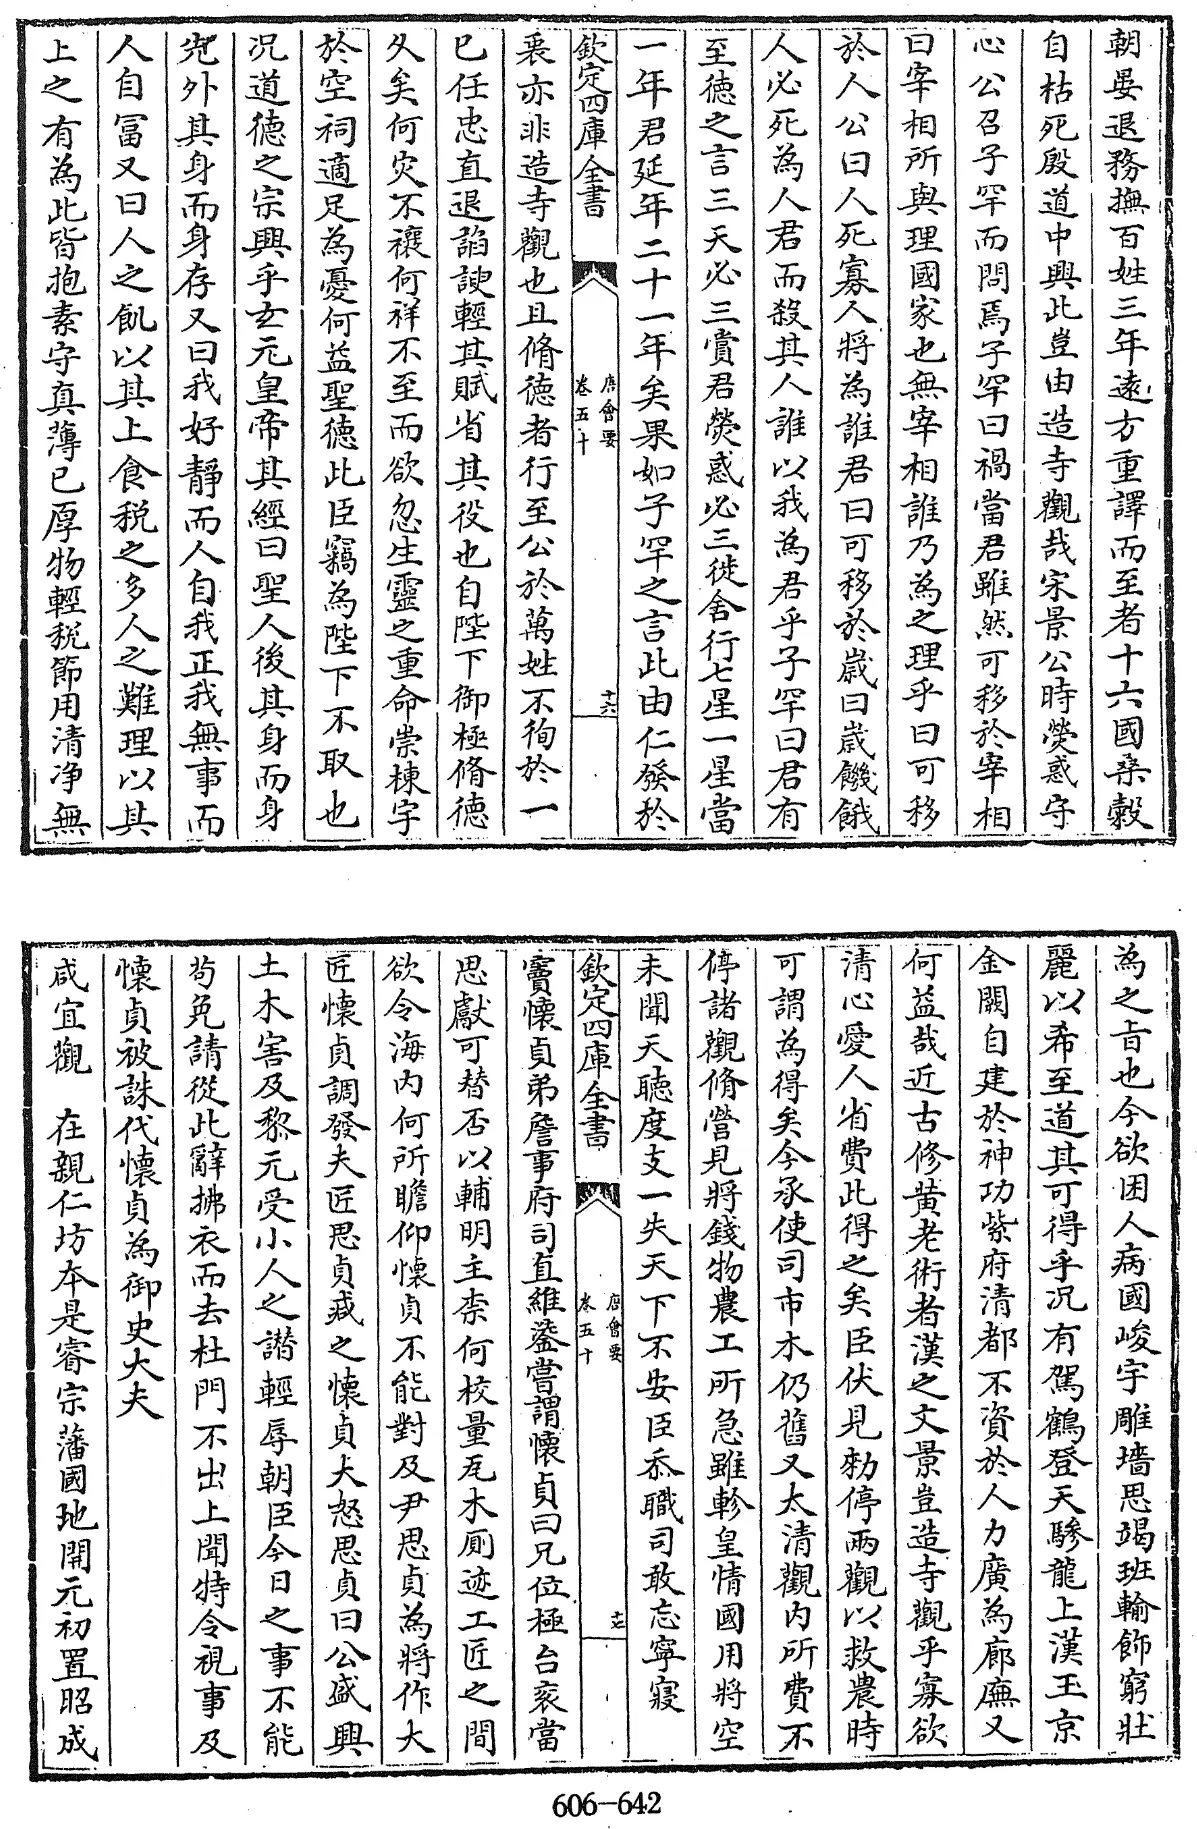 朝晏退務撫百姓三年遠方重譯而至者十六國桑糓
自枯死殷道中興此豈由造寺觀哉宋景公時熒惑守
心公召子罕而問焉子罕曰禍當君雖然可移於宰相
曰宰相所與理國家也無宰相誰乃為之理乎曰可移
於人公曰人死寡人將為誰君曰可移於歲曰歲饑餓
人必死為人君而殺其人誰以我為君乎子罕曰君有
至徳之言三天必三賞君熒惑必三徙舍行七星一星當
一年君延年二十一年矣果如子罕之言此由仁發於
欽定四庫全書
唐會要
卷五十
十六
衷亦非造寺觀也且脩徳者行至公於萬姓不徇於一
已任忠直退諂諛輕其賦省其役也自陛下御極脩徳
乆矣何災不禳何祥不至而欲忽生靈之重命崇棟宇
於空祠適足為憂何益聖徳此臣竊為陛下不取也
况道徳之宗興乎𤣥元皇帝其經曰聖人後其身而身
先外其身而身存又曰我好靜而人自我正我無事而
人自冨又曰人之飢以其上食税之多人之難理以其
上之有為此皆抱素守真薄已厚物輕税節用清浄無
為之㫖也今欲困人病國峻宇雕墻思竭班輸飾窮壯
麗以希至道其可得乎况有駕鶴登天驂龍上漢玉京
金闕自建於神功紫府清都不資於人力廣為廊廡又
何益哉近古修黄老術者漢之文景豈造寺觀乎寡欲
清心愛人省費此得之矣臣伏見勑停兩觀以救農時
可謂為得矣今承使司市木仍舊又太清觀内所費不
停諸觀脩營見將錢物農工所急雖軫皇情國用將空
未聞天聽度支一失天下不安臣忝職司敢忘寧寢
欽定四庫全書
唐會要
卷五十
十七
竇懐貞弟詹事府司直維鍙嘗謂懐貞曰兄位極台衮當
思獻可替否以輔明主柰何校量瓦木厠迹工匠之間
欲令海内何所瞻仰懐貞不能對及尹思貞為將作大
匠懐貞調發夫匠思貞戒之懐貞大怒思貞曰公盛興
土木害及黎元受小人之譛輕辱朝臣今日之事不能
茍免請從此辭拂衣而去杜門不出上聞特令視事及
懐貞被誅代懐貞為御史大夫
咸宜觀 在親仁坊本是睿宗藩國地開元初置昭成
606-642